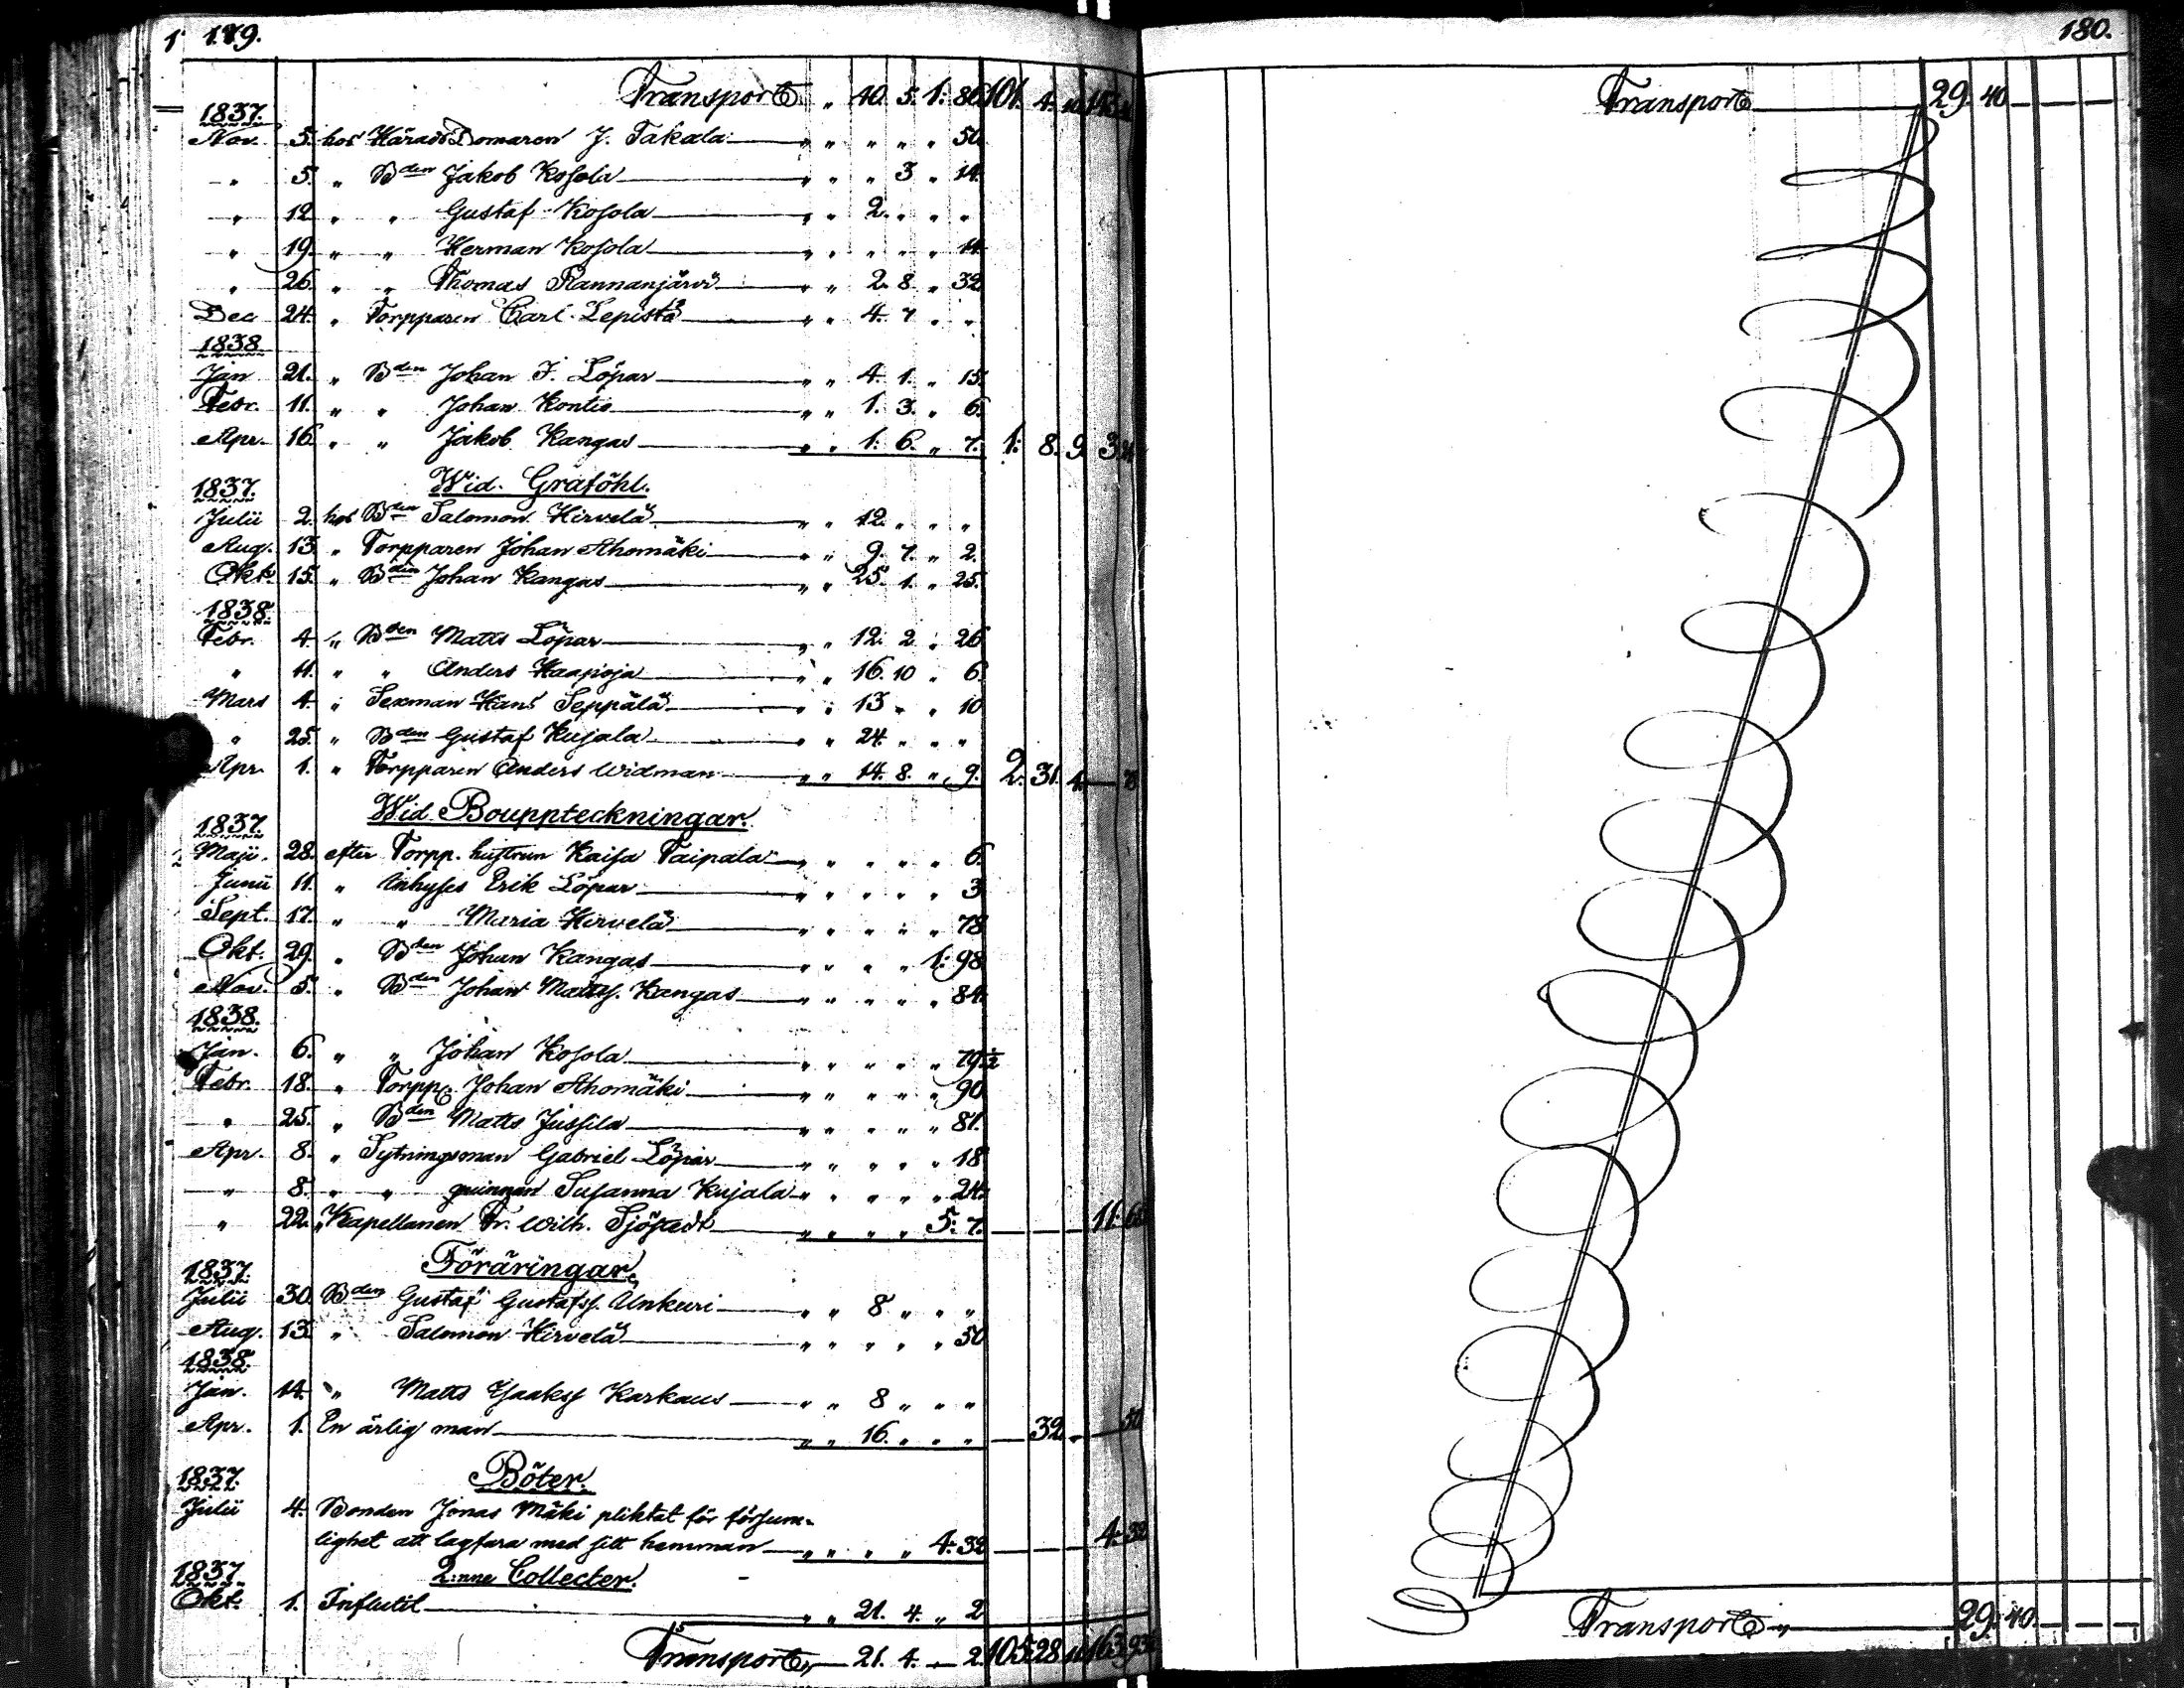 179.
Transport „ 40. 5. 1: 86 101. 4. 10
1837.
Nov. 5. hos Härads Domaren J. Takala „ „ „ „ „ 50.
„ 5. „ Bden Jakob Kosola „ „ „ 3 „ 14.
„ 12. „ „ Gustaf Kosola „ „ 2. „ „ „
„ 19. „ „ Herman Kosola „ „ „ „ „ 14
„ 26. „ „ Thomas Rannanjärvi „ „ 2. 8. „ 32
Dec 24. „ Torpparen Carl Lepistä „ „ 4. 7 „ „
1838
Jan 21. „ Bden Johan J. Löpar „ „ 4. 1. „ 15.
Febr. 11. „ „ Johan Kontio „ „ 1. 3. „ 6.
Apr. 16. „ „ Jakob Kangas „ „ 1: 6. „ 7. 1: 8. 9.
Wid Graföhl.
1837.
Julii 2. hos Bden Salomon Hirvelä „ „ 12. „ „ „
Aug. 13. „ Torpparen Johan Ahomäki „ „ 9. 7. „ 2.
Okt. 15. „ Bden Johan Kangas „ „ 25. 1. „ 25.
1838.
Febr. 4. „ Bden Matts Löpar „ „ 12. 2. „ 26
„ 11. „ „ Anders Haapoja „ „ 16. 10 „ 6.
Mars 4. „ Sexman Hans Seppälä „ „ 13 „ „ 10
„ 25. „ Bden Gustaf Kujala „ „ 24. „ „ „
Apr. 1. „ Torpparen Anders Widman „ „ 14. 8. „ 9. 2. 31. 4.
Wid Bouppteckningar.
1837.
Maji. 28. efter Torpp. hustrun Kaisa Taipala „ „ „ „ „ 6.
Junii 11. „ Inhyses Erik Löpar „ „ „ „ „ 3
Sept. 17. „ „ Maria Hirvelä „ „ „ „ „ 78
Okt. 29. „ Bden Johan Kangas „ „ „ „ 1: 98
Nov. 5. „ Bden Johan Matts. Kangas „ „ „ „ „ 84.
1838.
Jan. 6. „ „ Johan Kosola „ „ „ „ „ 79 1/2
Febr. 18. „ Torpp. Johan Ahomäki „ „ „ „ „ 90
„ 25. „ Bden Matts Jussila „ „ „ „ „ 81.
Apr. 8. „ Sytningsman Gabriel Löpar „ „ „ „ „ 18
„ 8. „ „ quinnan Susanna Kujala „ „ „ „ „ 24.
„ 22. „ Kapellanen Fr. Wilh. Sjöstedt „ „ „ „ 5: 7. — — — 11:
Föräringar.
1837
Julii 30. Bden Gustaf Gustafss. Unkuri „ „ 8 „ „ „
Aug. 13. „ Salomon Hirvelä „ „ „ „ „ 50
1838.
Jan. 14. „ Matts Isaakss Karkaus „ „ 8 „ „ „
Apr. 1. En ärlig man „ „ 16. „ „ „ — 32. „ — 50
Böter.
1837.
Julii 4. Bonden Jonas Mäki pliktat för försum-
lighet att lagfara med sitt hemman „ „ „ „ 4: 32 — — — 4: 32
1837. 2:nne Collecter.
Okt. 1. Influtit „ „ 21. 4. „ 2
Transport „ — 21. 4. — 2. 105. 28.
180.
Transport — 29. 40. — — —
Transport „ — 29. 40. — — —